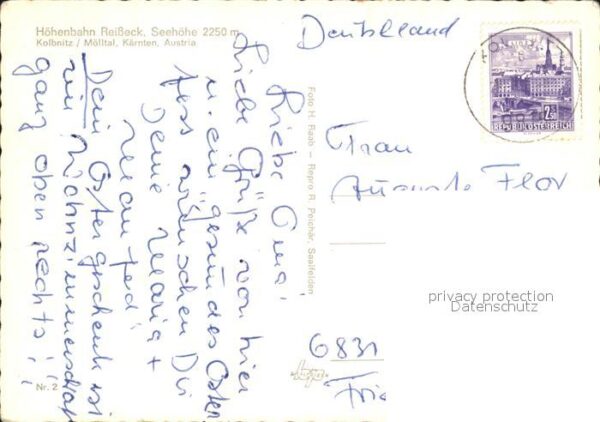 Höhenbahn Reißeck, Seehöhe 2250 m
Kolbnitz / Mölltal, Kärnten, Austria
Deutschland
2.50
REPUBLIK ÖSTERREICH
Foto H. Raab — Repro R. Peichär, Saalfelden
Liebe Oma!
Liebe Grüße von hier
u. ein "gesundes Oster
fest wünschen Dir
Deine Maria +
Manfred
Dein Ostergeschenk ist
im Wohnzimmerschrank
ganz oben rechts!!
Frau
Auguste Flor
privacy protection
Datenschutz
6831
Nr. 2